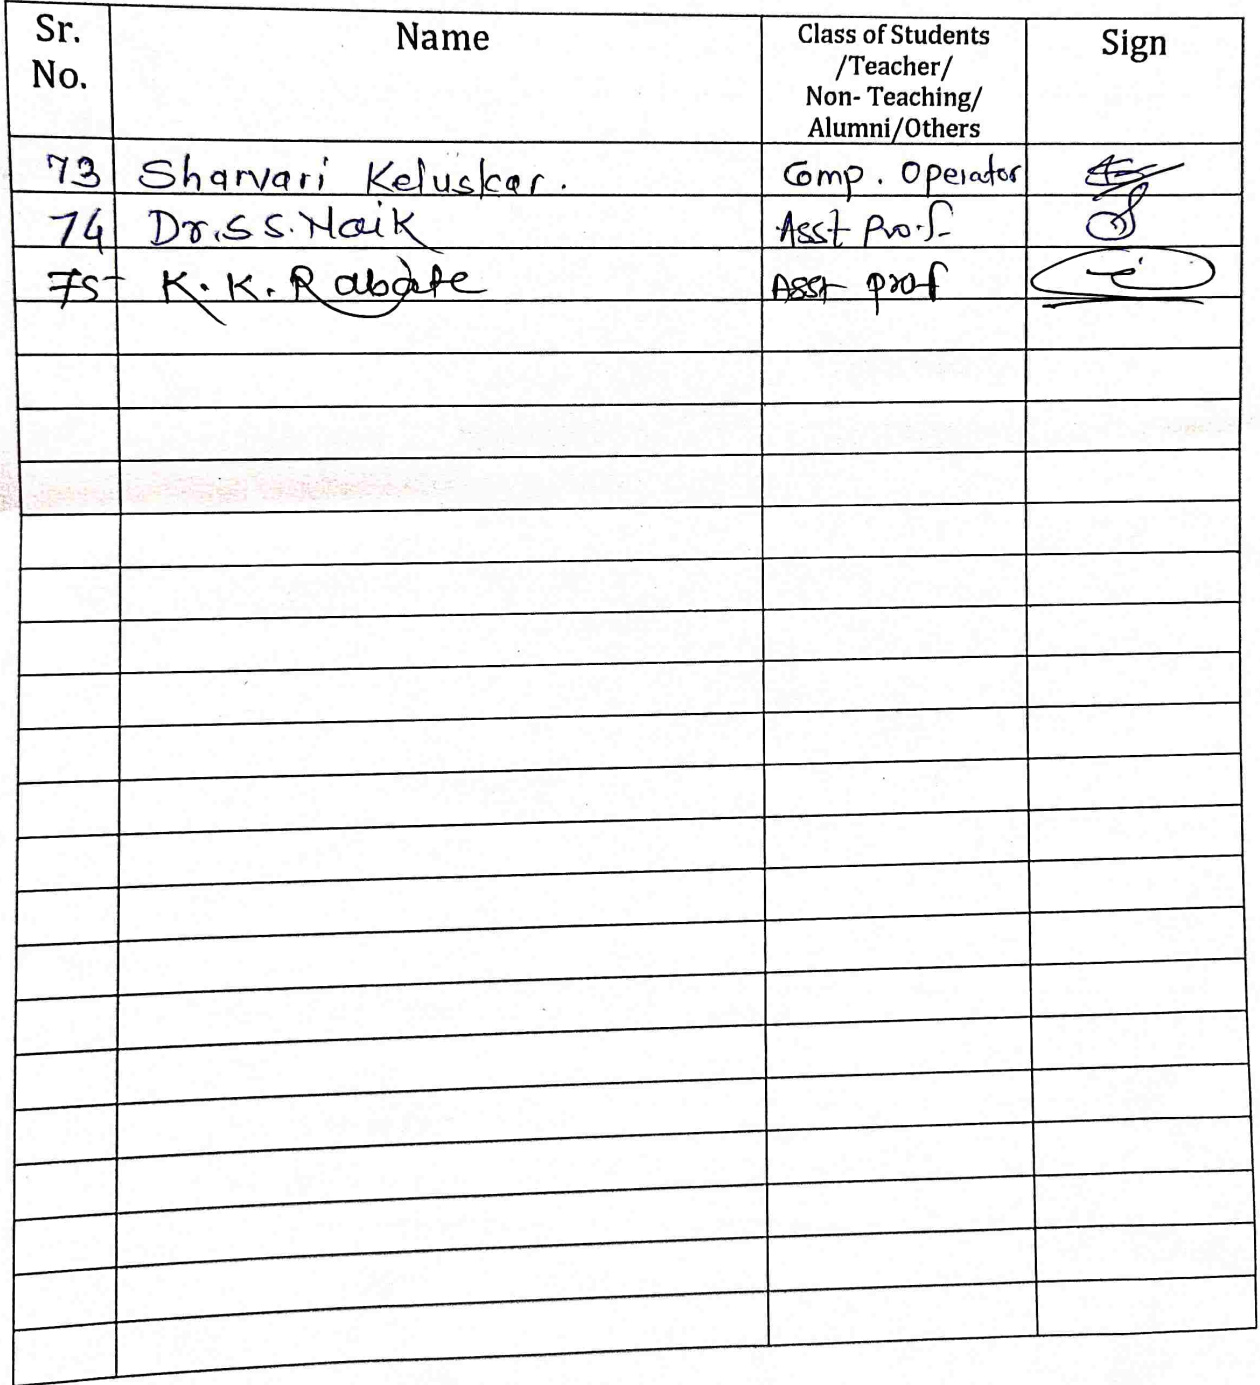 Sr. No. Name Class of Students /Teacher/ Non- Teaching/ Alumni/Others Sign
73 Sharvari Keluskar. Comp. Operator
74 Dr. S S. Naik Asst Prof.
75 K. K. Rabate Asst prof